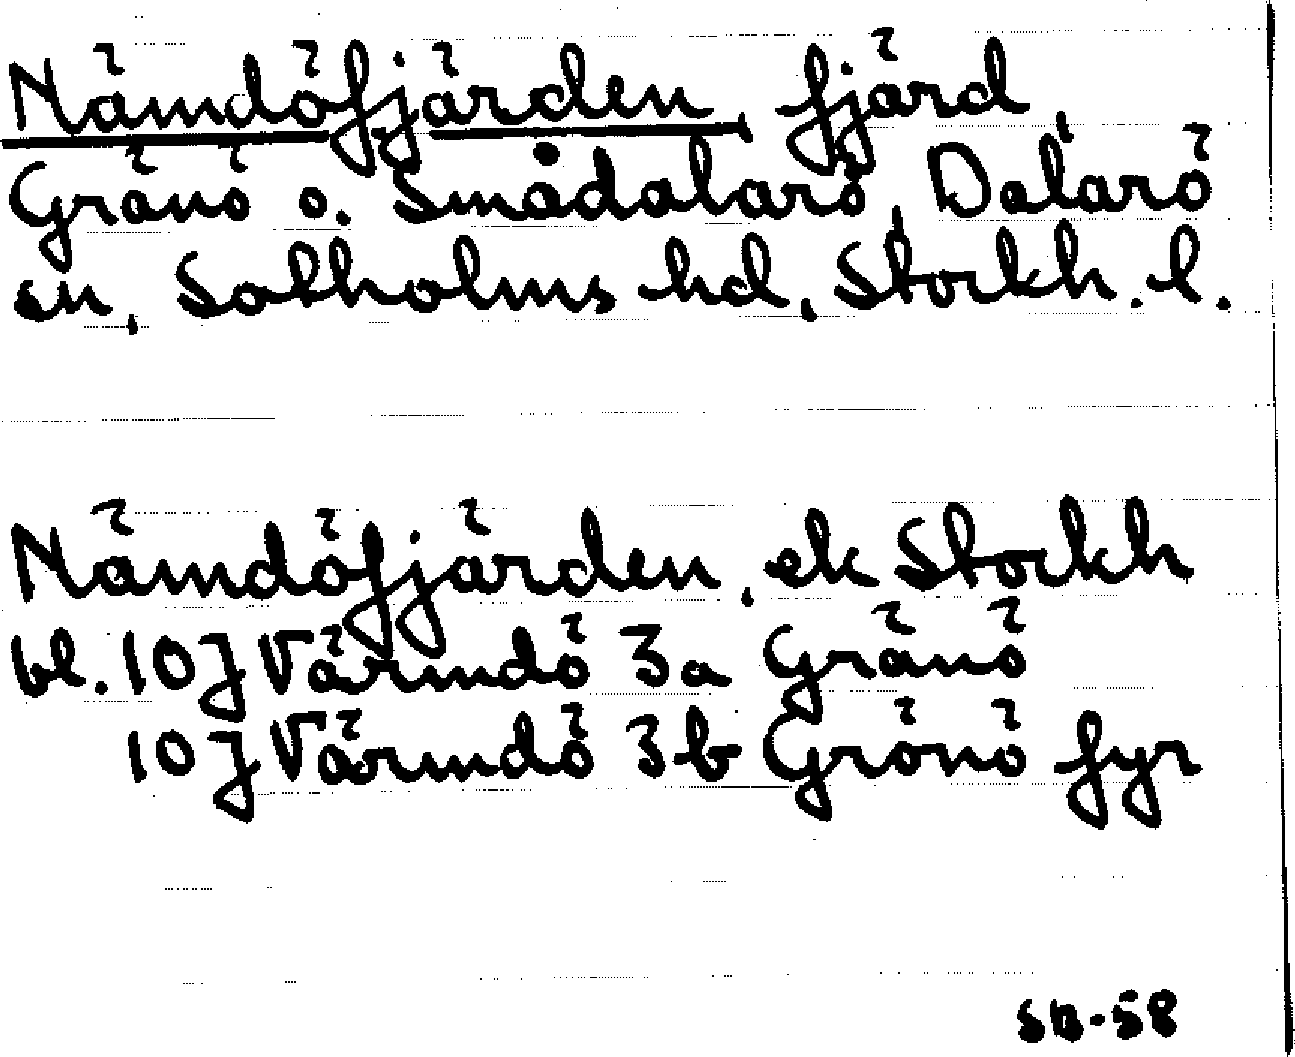 Nämdöfjärden, fjärd
Gränö o. Smådalarö, Dalarö
sn, Sotholms hd, Stockh. l.
Nämdöfjärden, ek Stockh
bl. 10J Värmdö 3a Gränö
10J Värmdö 3b Grönö fyr
SB-58